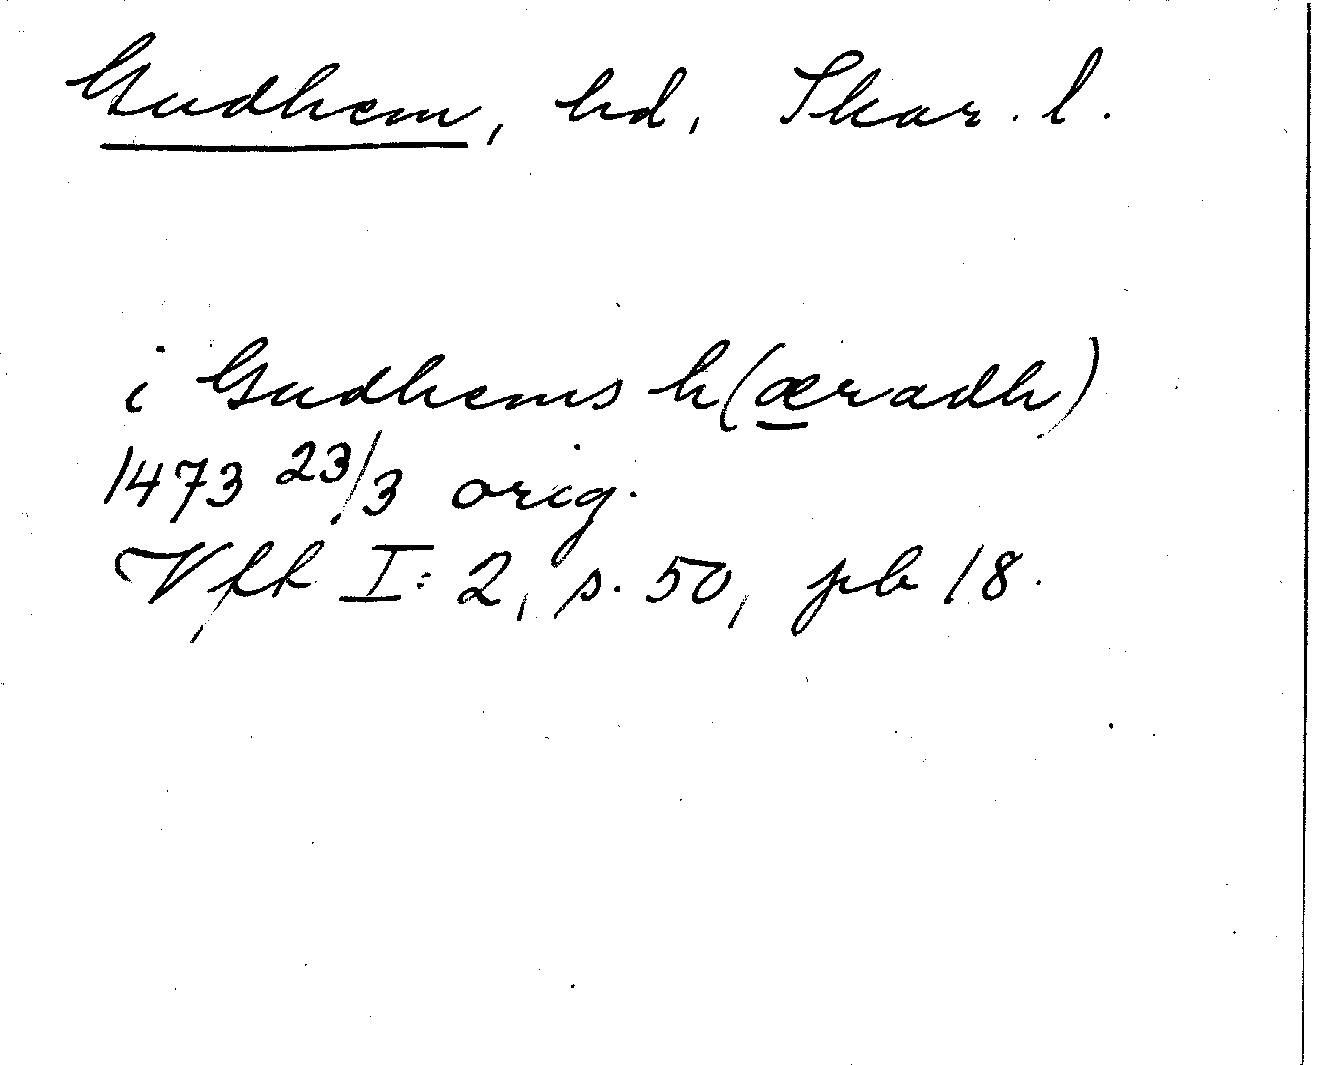 Gudhem, hd, Skar. l.
i Gudhems h(æradh)
1473 23/3 orig.
Vft I:2, s. 50, pb 18.